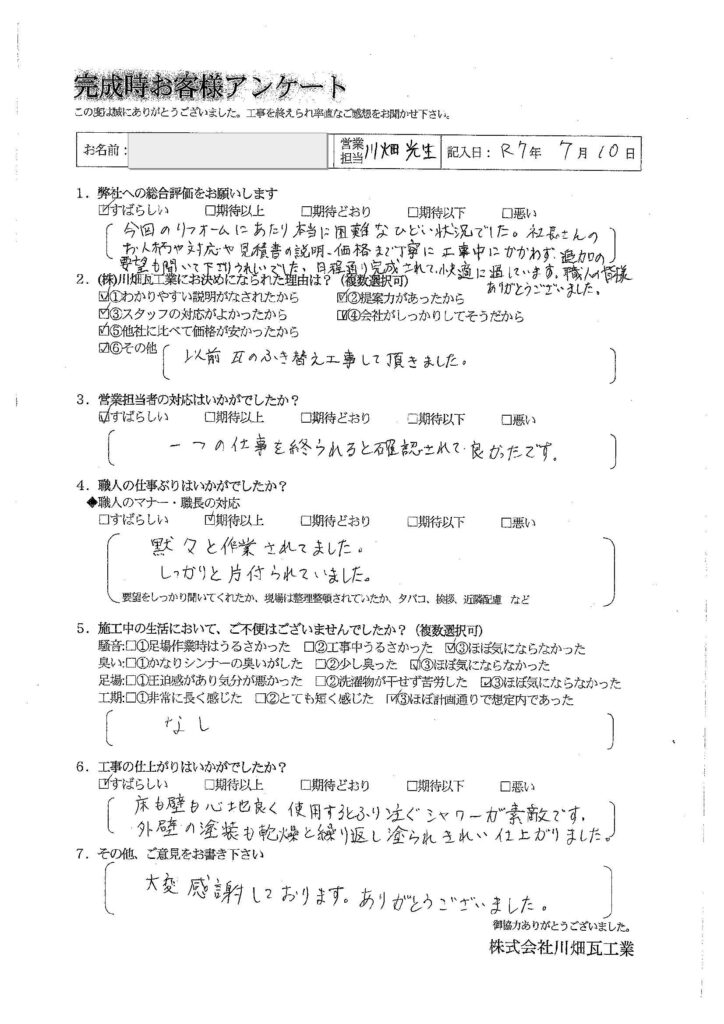 完成時お客様アンケート
この度は誠にありがとうございました。工事を終えられ率直なご感想をお聞かせ下さい。
お名前： 営業担当 川畑 光生 記入日： R7年 7月10日
1．弊社への総合評価をお願いします
☑すばらしい □期待以上 □期待どおり □期待以下 □悪い
今回のリフォームにあたり本当に困難なひどい状況でした。社長さんの
お人柄や対応や見積書の説明、価格まで丁寧に工事中にかかわず、追加の
要望も聞いて下さりうれしいでした。日程通り完成されて、快適に過しています。職人の皆様
ありがとうございました。
2．(株)川畑瓦工業にお決めになられた理由は？（複数選択可）
☑①わかりやすい説明がなされたから ☑②提案力があったから
☑③スタッフの対応がよかったから ☑④会社がしっかりしてそうだから
☑⑤他社に比べて価格が安かったから
☑⑥その他 以前 瓦のふき替え工事して頂きました。
3．営業担当者の対応はいかがでしたか？
☑すばらしい □期待以上 □期待どおり □期待以下 □悪い
一つの仕事を終られると確認されて良かったです。
4．職人の仕事ぶりはいかがでしたか？
◆職人のマナー・職長の対応
□すばらしい ☑期待以上 □期待どおり □期待以下 □悪い
黙々と作業されてました。
しっかりと片付られていました。
要望をしっかり聞いてくれたか、現場は整理整頓されていたか、タバコ、挨拶、近隣配慮 など
5．施工中の生活において、ご不便はございませんでしたか？（複数選択可）
騒音:□①足場作業時はうるさかった □②工事中うるさかった ☑③ほぼ気にならなかった
臭い:□①かなりシンナーの臭いがした □②少し臭った ☑③ほぼ気にならなかった
足場:□①圧迫感があり気分が悪かった □②洗濯物が干せず苦労した ☑③ほぼ気にならなかった
工期:□①非常に長く感じた □②とても短く感じた ☑③ほぼ計画通りで想定内であった
なし
6．工事の仕上がりはいかがでしたか？
☑すばらしい □期待以上 □期待どおり □期待以下 □悪い
床も壁も心地良く使用するとふり注ぐシャワーが素敵です。
外壁の塗装も乾燥と繰り返し塗られきれい仕上がりました。
7．その他、ご意見をお書き下さい
大変感謝しております。ありがとうございました。
御協力ありがとうございました。
株式会社川畑瓦工業